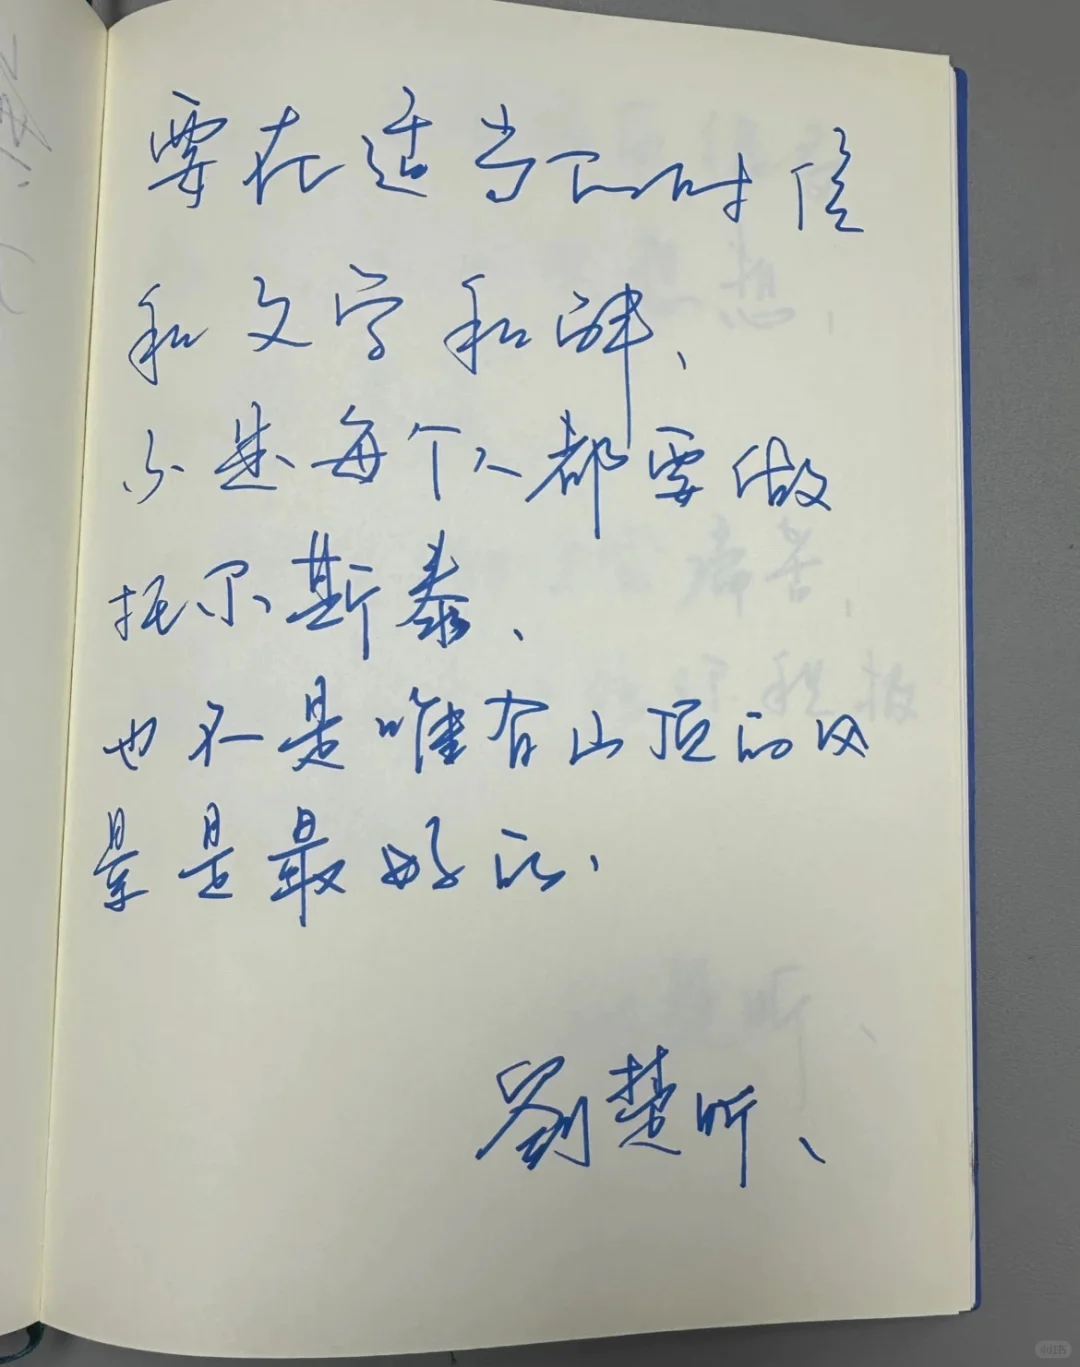 要在适当的时候
和文字和解、
不是每个人都要做
托尔斯泰、
也不是唯有山顶的风
景是最好的、
劉楚昕、